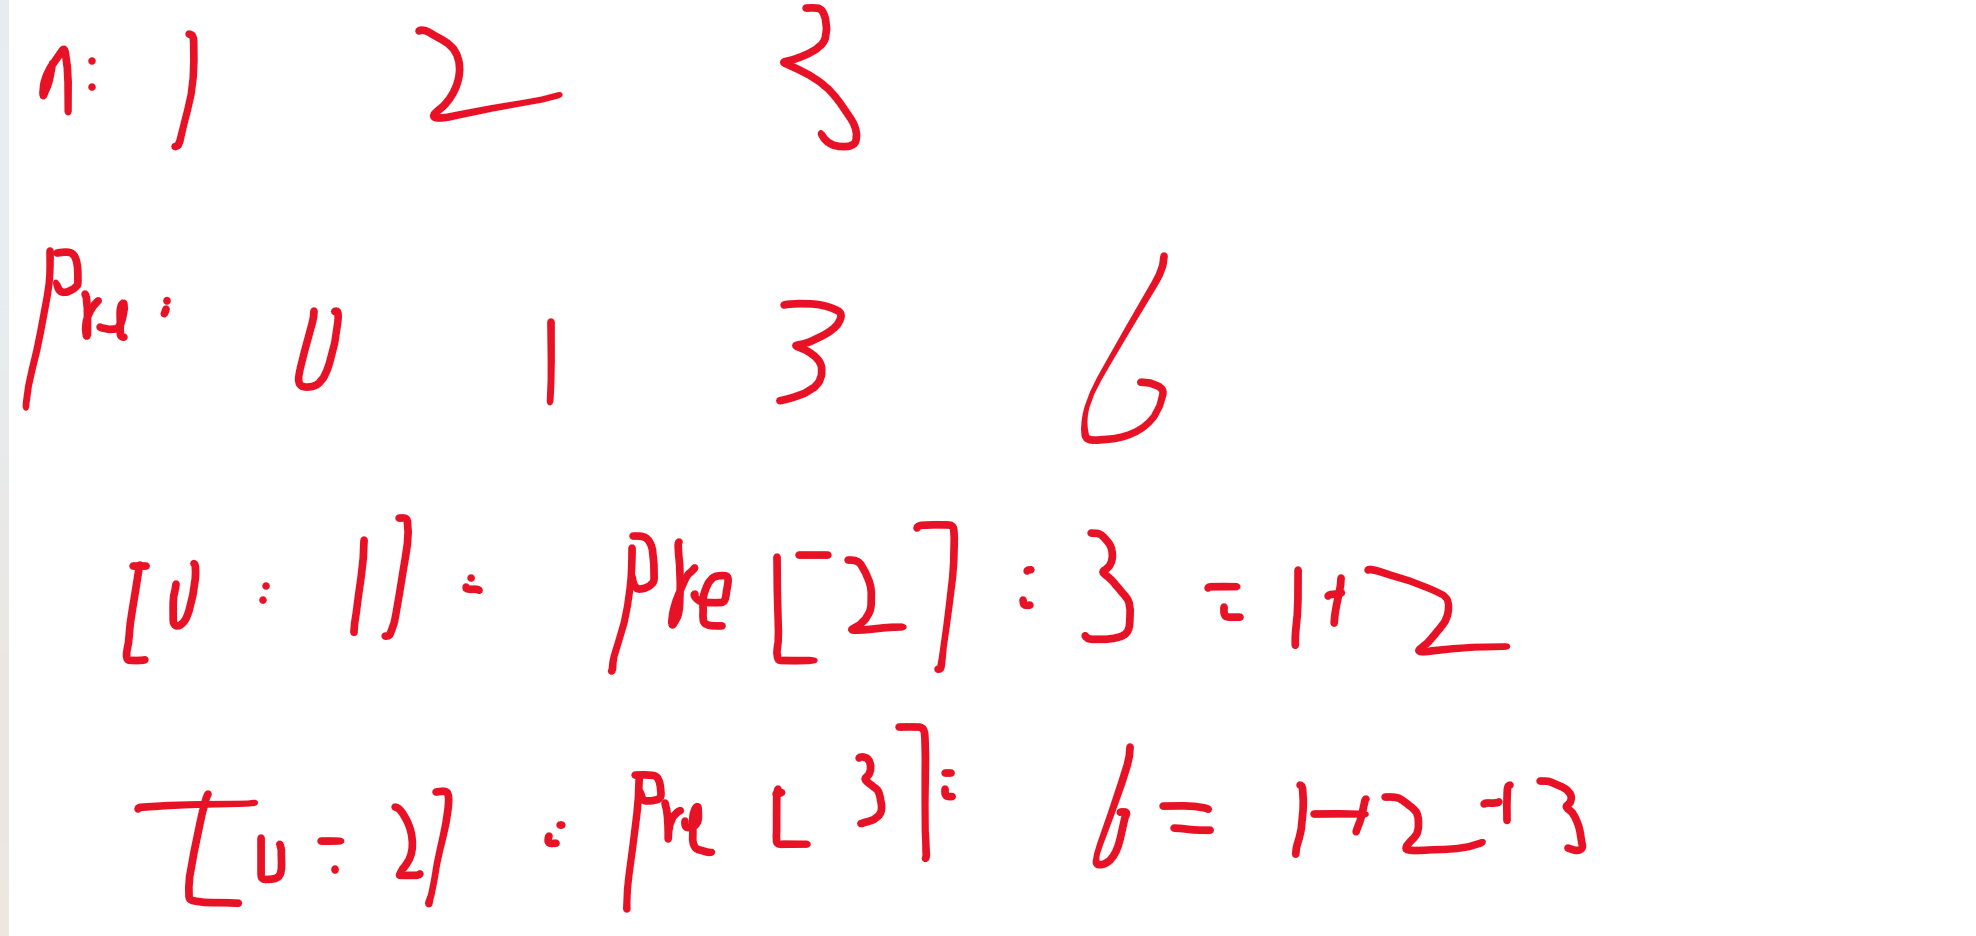 n: 1 2 3
pre: 0 1 3 6
[0:1]: pre[2]: 3 = 1+2
[0:2]: pre[3]: 6 = 1+2+3